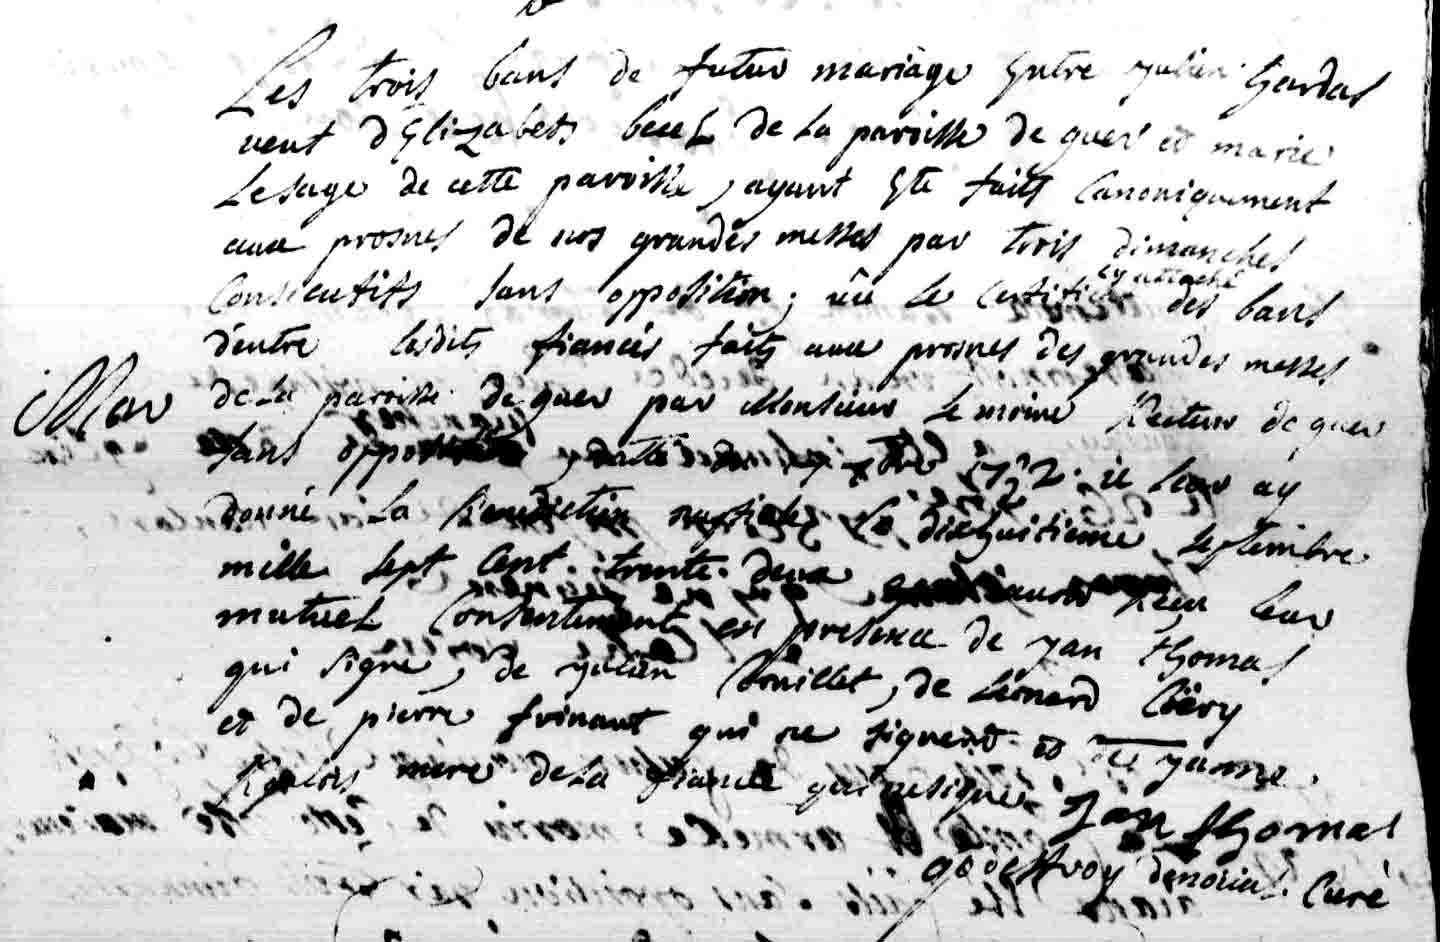 Les trois bans de futur mariage Entre julien Gardas
veuf d'Elizabeth becel de la paroisse de guer et marie
Lesage de cette paroisse, ayant Eté faits Canoniquement
aux prosnes de nos grandes messes par trois dimanches
Consecutifs sans opposition; vû le certificat cy attaché des bans
d'entre lesdits fiancés faits aux prosnes des grandes messes
Mar
de la paroisse de guer par Monsieur Le moine Recteur de guer
sans opposition datté du 1732. je leur ay
donné La Benediction nuptiale Le dixhuitieme septembre
mille sept Cent trente deux ayant Reçu leur
mutuel Consentement en presence de yan thomas
qui signe, de yulien Bouillet, de Léonard
et de pierre frinaut qui ne signent et de yanne
mere de la fiancée qui ne signe
Jan thomas
godeffroy denoual Curé